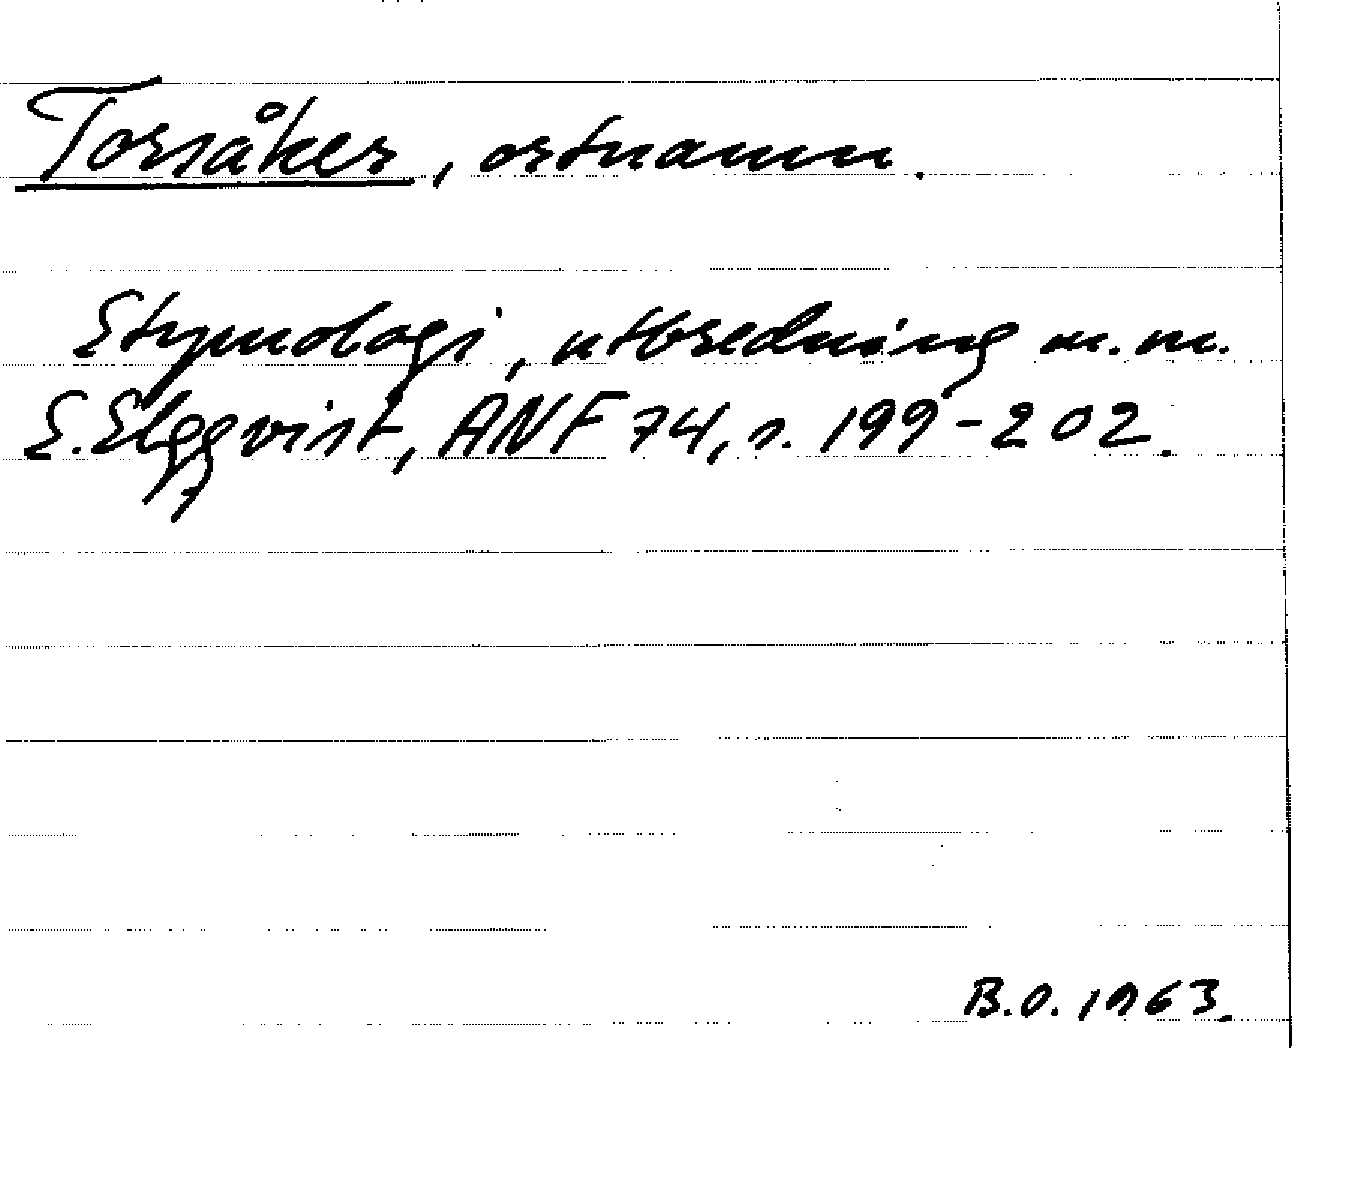 Torsåker, ortnamn.
Etymologi, utbredning m.m.
E. Elgqvist, ANF 74, s. 199-202.
B.O. 1963.